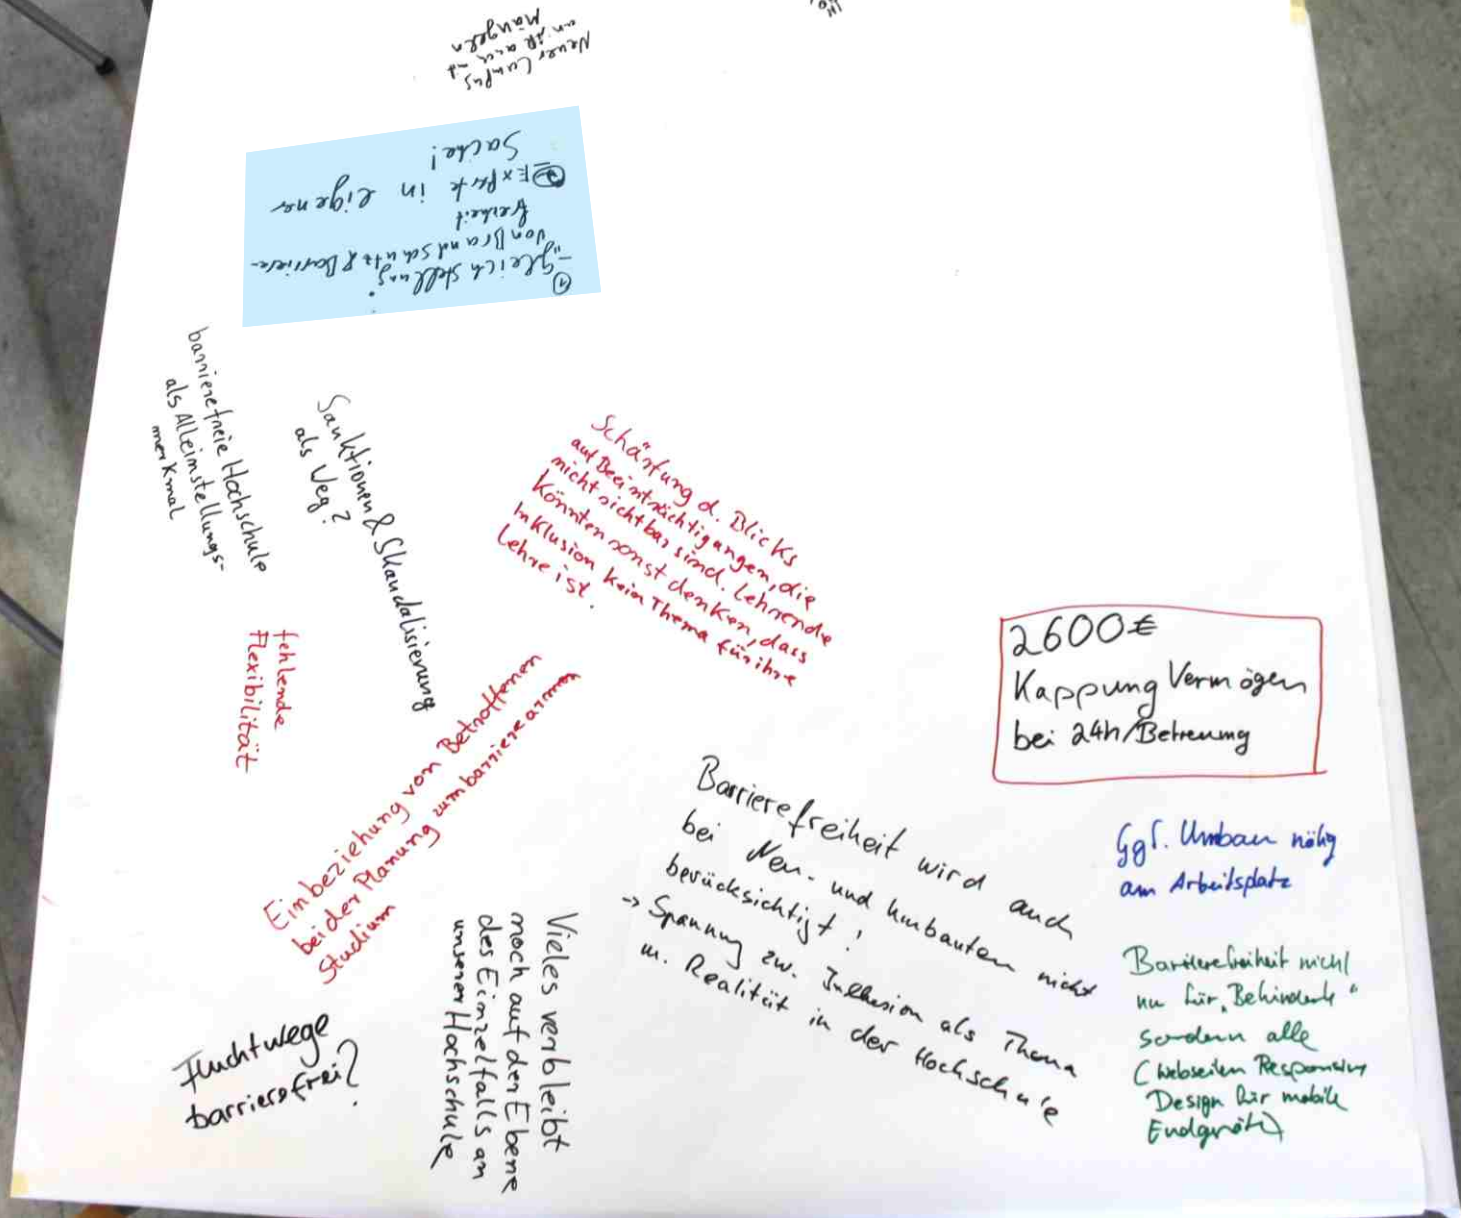 Neuer Campus
Mängeln
① "Gleichstellung"
von Brandschutz & Barriere-
freiheit
② Experte in eigener
Sache!
barrierefreie Hochschule
als Alleinstellungs-
merkmal
Sanktionen & Skandalisierung
als Weg?
Schärfung d. Blicks
auf Beeinträchtigungen, die
nicht sichtbar sind. Lehrende
könnten sonst denken, dass
Inklusion kein Thema für ihre
Lehre ist.
fehlende
Flexibilität
Einbeziehung von Betroffenen
bei der Planung zum barrierearmen
Studium
2600€
Kappung Vermögen
bei 24h/Betreuung
Barrierefreiheit wird auch
bei Neu- und Umbauten nicht
berücksichtigt!
-> Spannung zw. Inklusion als Thema
u. Realität in der Hochschule
Ggf. Umbau nötig
am Arbeitsplatz
Barrierefreiheit nicht
nur für „Behinderte"
sondern alle
(Webseiten Responsive
Design für mobile
Endgeräte)
Vieles verbleibt
noch auf der Ebene
des Einzelfalls an
unserer Hochschule
Fluchtwege
barrierefrei?